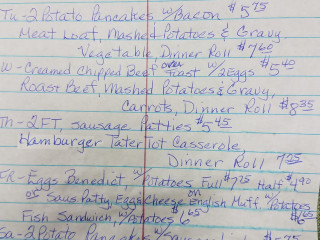 Tu-2 Potato Pancakes w/Bacon $5.75
Meat Loaf, Mashed Potatoes & Gravy
Vegetable, Dinner Roll $7.60
W-Creamed Chipped Beef over Toast w/2 Eggs $5.40
Roast Beef, Mashed Potatoes & Gravy,
Carrots, Dinner Roll $8.35
Th-2 FT, Sausage Patties $5.45
Hamburger Tater Tot Casserole,
Dinner Roll 7.25
Fr-Eggs Benedict, w/Potatoes Full $7.75 Half $4.90
or Saus Patty, Eggs, Cheese on English Muff. w/Potatoes
Fish Sandwich, w/Potatoes $6.65
Sa-2 Potato Pancakes